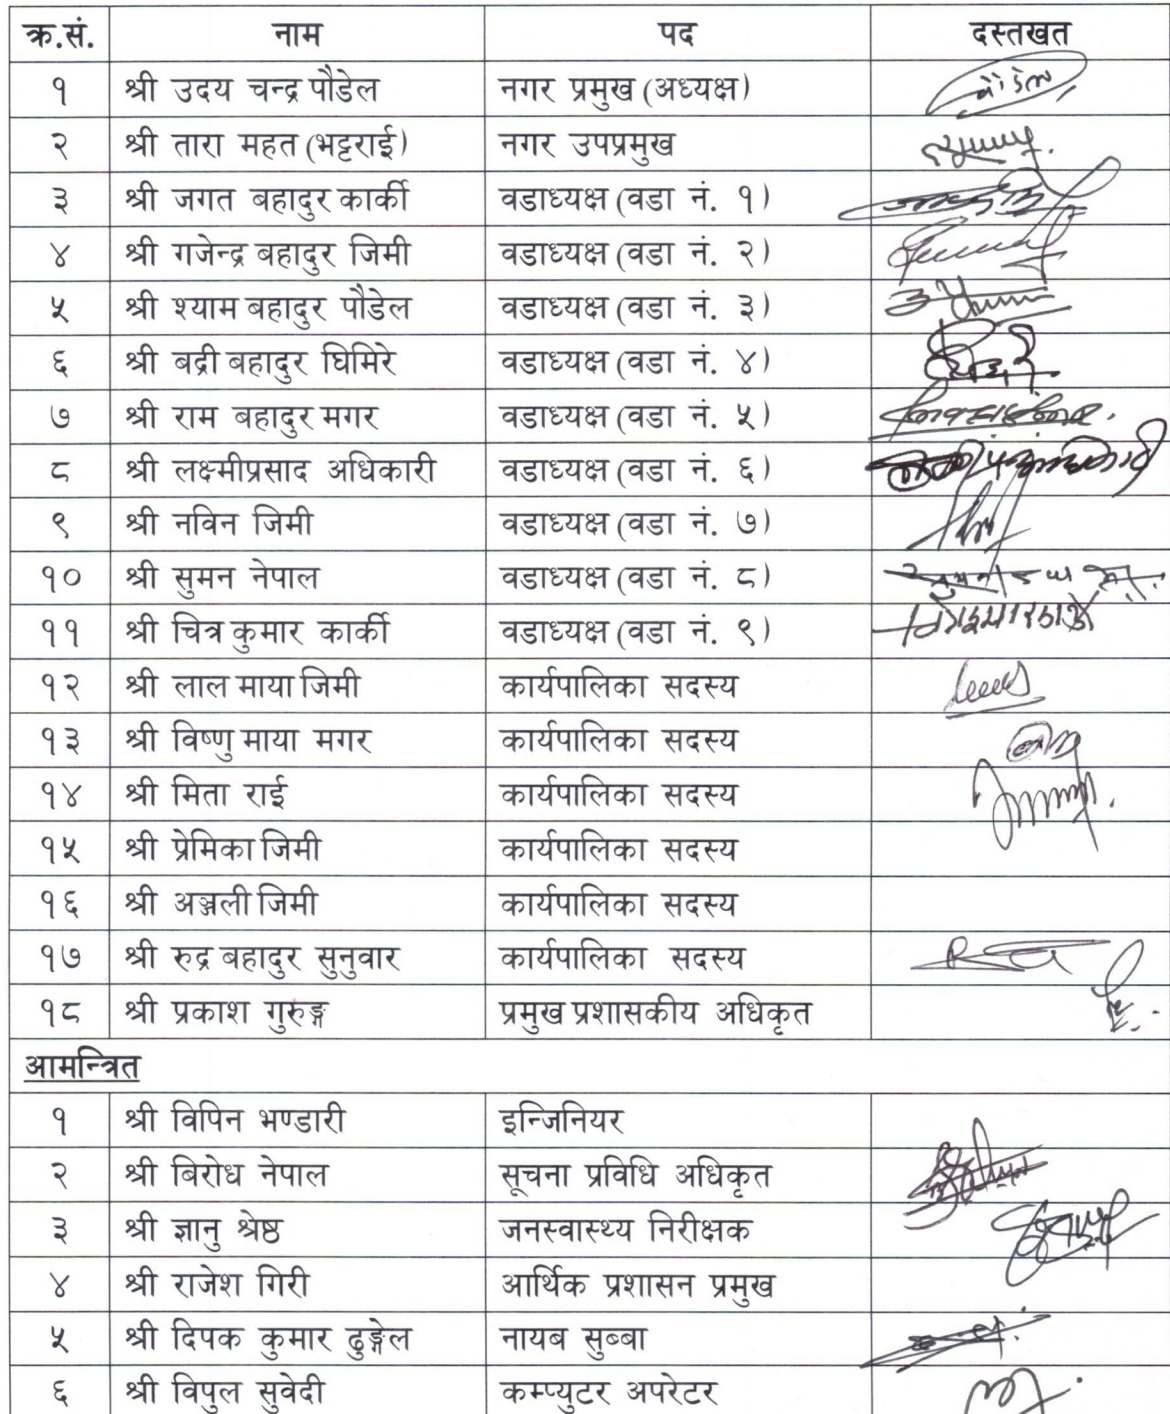 क्र.सं. नाम पद दस्तखत
१ श्री उदय चन्द्र पौडेल नगर प्रमुख (अध्यक्ष) पौडेल
२ श्री तारा महत (भट्टराई) नगर उपप्रमुख
३ श्री जगत बहादुर कार्की वडाध्यक्ष (वडा नं. १)
४ श्री गजेन्द्र बहादुर जिमी वडाध्यक्ष (वडा नं. २)
५ श्री श्याम बहादुर पौडेल वडाध्यक्ष (वडा नं. ३)
६ श्री बद्री बहादुर घिमिरे वडाध्यक्ष (वडा नं. ४)
७ श्री राम बहादुर मगर वडाध्यक्ष (वडा नं. ५)
८ श्री लक्ष्मीप्रसाद अधिकारी वडाध्यक्ष (वडा नं. ६)
९ श्री नविन जिमी वडाध्यक्ष (वडा नं. ७)
१० श्री सुमन नेपाल वडाध्यक्ष (वडा नं. ८)
११ श्री चित्र कुमार कार्की वडाध्यक्ष (वडा नं. ९)
१२ श्री लाल माया जिमी कार्यपालिका सदस्य
१३ श्री विष्णु माया मगर कार्यपालिका सदस्य
१४ श्री मिता राई कार्यपालिका सदस्य
१५ श्री प्रेमिका जिमी कार्यपालिका सदस्य
१६ श्री अञ्जली जिमी कार्यपालिका सदस्य
१७ श्री रुद्र बहादुर सुनुवार कार्यपालिका सदस्य
१८ श्री प्रकाश गुरुङ्ग प्रमुख प्रशासकीय अधिकृत
आमन्त्रित
१ श्री विपिन भण्डारी इन्जिनियर
२ श्री बिरोध नेपाल सूचना प्रविधि अधिकृत
३ श्री ज्ञानु श्रेष्ठ जनस्वास्थ्य निरीक्षक
४ श्री राजेश गिरी आर्थिक प्रशासन प्रमुख
५ श्री दिपक कुमार ढुङ्गेल नायब सुब्बा
६ श्री विपुल सुवेदी कम्प्युटर अपरेटर